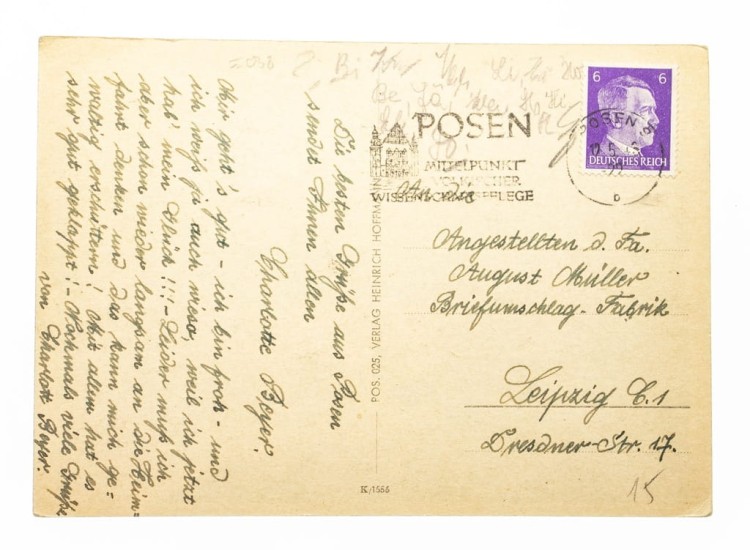 2058
POSEN
MITTELPUNKT
WISSENSCHAFTSPFLEGE
6 6
DEUTSCHES REICH
POSEN
12.5.
b
An die
Angestellten d. Fa.
August Müller
Briefumschlag-Fabrik
Leipzig C.1
Dresdner-Str. 17.
15
POS. 025, VERLAG HEINRICH HOFFMANN
K/1556
Die besten Grüße aus Posen
sendet Ihnen allen
Charlotte Beyer.
Mir geht's gut - ich bin froh - und
ich weiß ja auch wieso, weil ich jetzt
hab' mein Glück!!! - Leider muß ich
aber schon wieder langsam an die Heim-
fahrt denken und das kann mich ge-
waltig erschüttern! Mit allem hat es
sehr gut geklappt! - Nochmals viele Grüße
von Charlott Beyer.